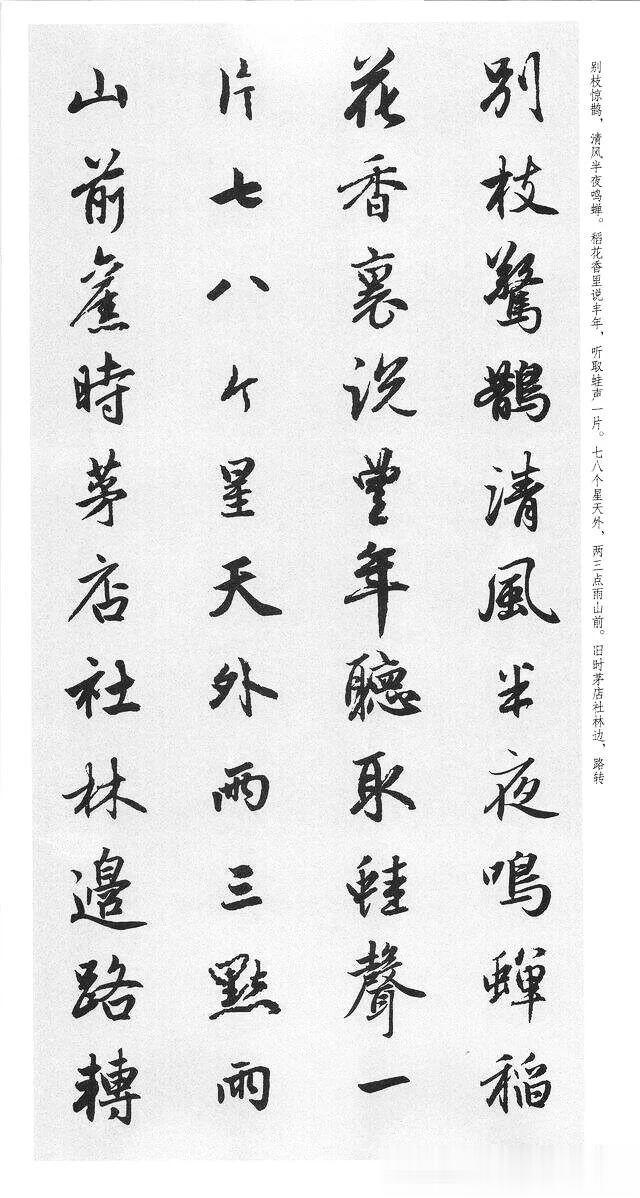 别枝惊鹊，清风半夜鸣蝉。稻花香里说丰年，听取蛙声一片。七八个星天外，两三点雨山前。旧时茅店社林边，路转
別枝驚鵲清風半夜鳴蟬稻
花香裏説豐年聽取蛙聲一
片七八个星天外兩三點雨
山前舊時茅店社林邊路轉